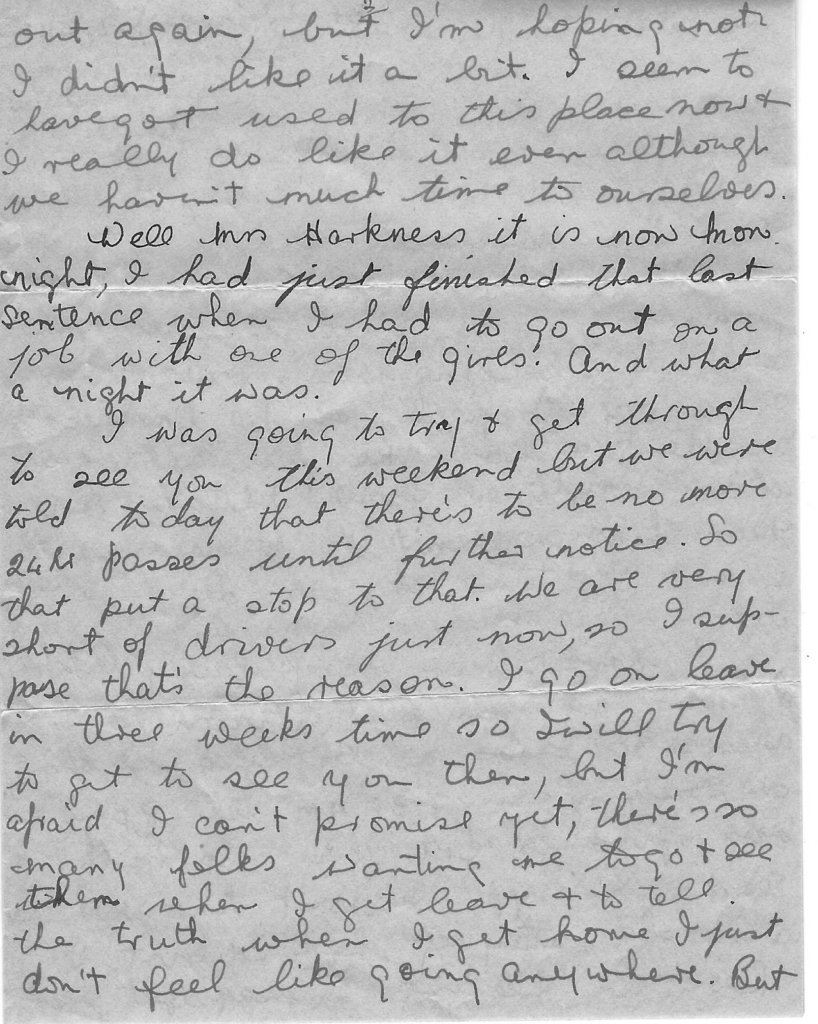 out again, but I'm hoping not
I didn't like it a bit. I seem to
have got used to this place now &
I really do like it even although
we haven't much time to ourselves.
Well Mrs Harkness it is now Mon.
night, I had just finished that last
sentence when I had to go out on a
job with one of the girls. And what
a night it was.
I was going to try & get through
to see you this weekend but we were
told today that there's to be no more
24 hr passes until further notice. So
that put a stop to that. We are very
short of drivers just now, so I sup-
pose that's the reason. I go on leave
in three weeks time so I will try
to get to see you then, but I'm
afraid I can't promise yet, there's so
many folks wanting me to go & see
them when I get leave & to tell.
the truth when I get home I just
don't feel like going anywhere. But